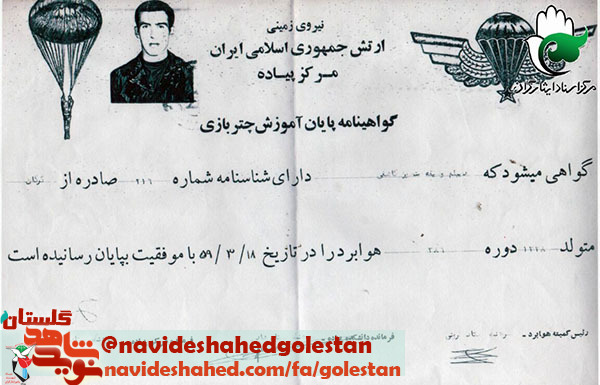 نیروی زمینی
ارتش جمهوری اسلامی ایران
مرکز پیاده
مرکز اسناد ایثارگران
گواهینامه پایان آموزش چتربازی
گواهی میشود که دارای شناسنامه شماره ۲۱۶ صادره از
متولد دوره ۲۸۶ هوابرد را در تاریخ ۱۸ / ۳ / ۵۹ با موفقیت بپایان رسانیده است
رئیس کمیته هوابرد فرمانده دانشکده
نوید شاهد گلستان
@navideshahedgolestan
navideshahed.com/fa/golestan